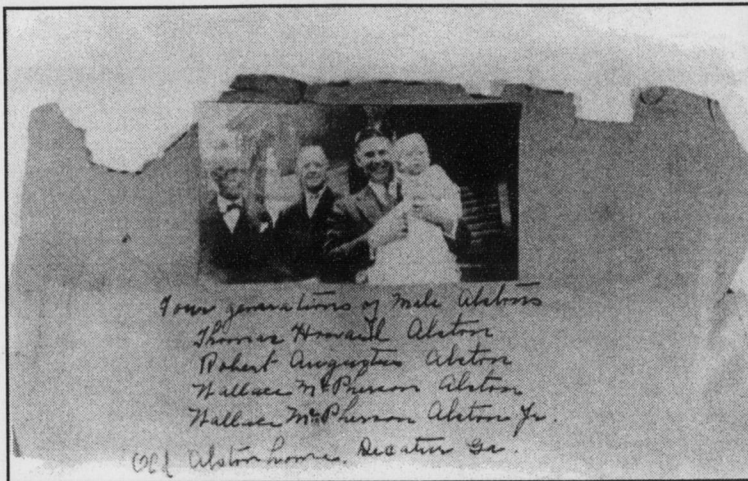 Four generations of Male Alstons
Thomas Howard Alston
Robert Augustus Alston
Wallace McPherson Alston
Wallace McPherson Alston Jr.
Old Alston home. Decatur Ga.